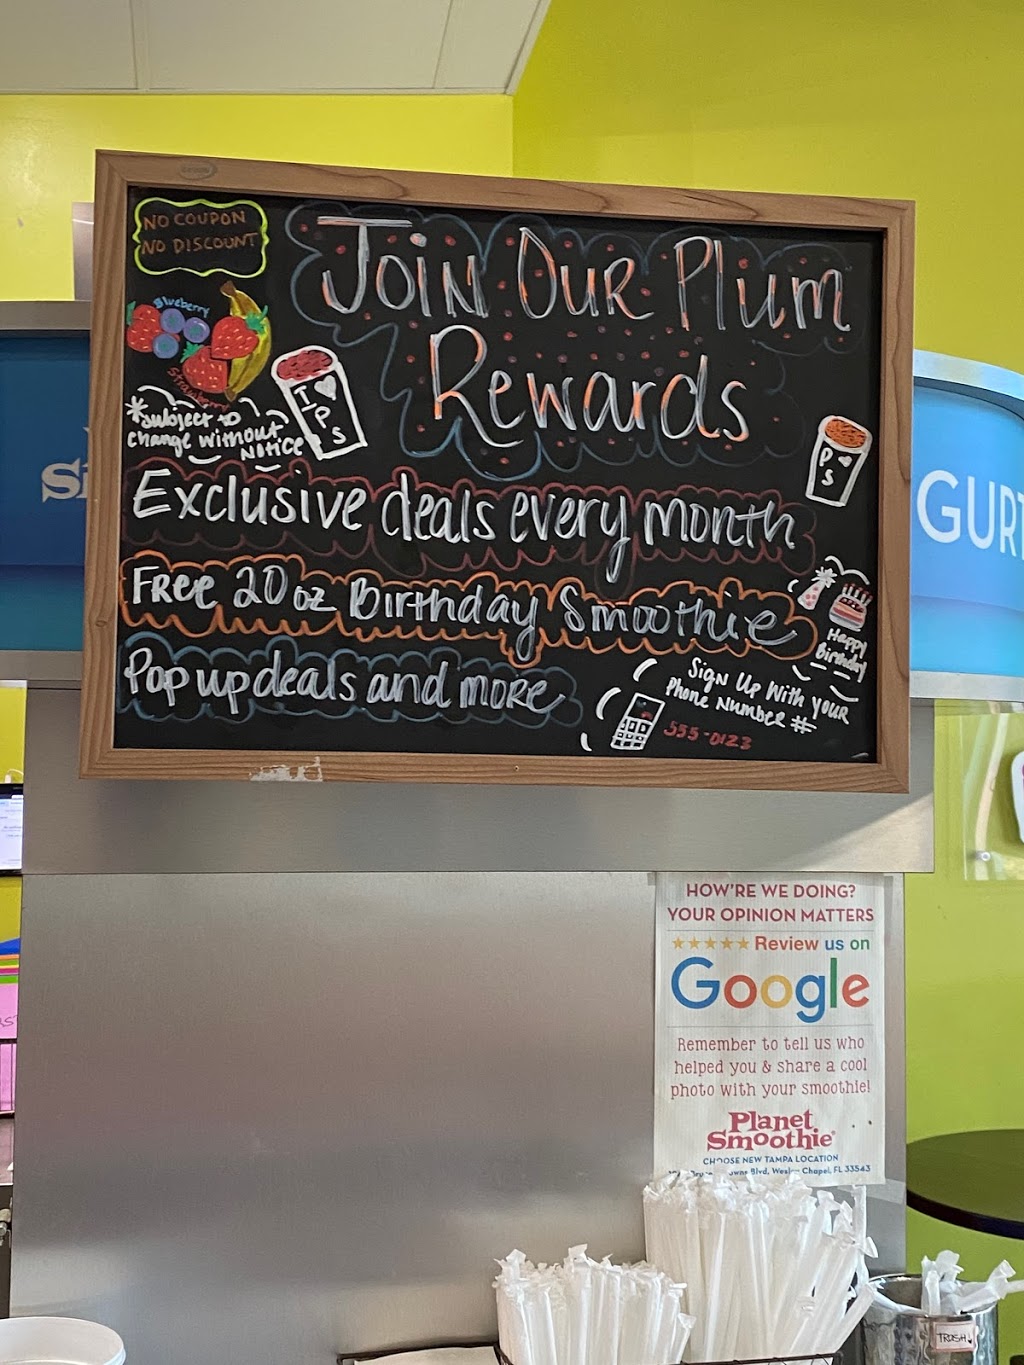 NO COUPON
NO DISCOUNT
Join Our Plum
Rewards
Blueberry
Strawberry
*Subject to
change without
Notice
I ♥
P
S
P ♥
S
Exclusive deals every month
Free 20 oz Birthday Smoothie
Happy
Birthday
Pop up deals and more
Sign Up With your
Phone Number #
555-0123
GURT
HOW'RE WE DOING?
YOUR OPINION MATTERS
★★★★★ Review us on
Google
Remember to tell us who
helped you & share a cool
photo with your smoothie!
Planet
Smoothie®
CHOOSE NEW TAMPA LOCATION
Blvd, Wesley Chapel, FL 33543
TRASH